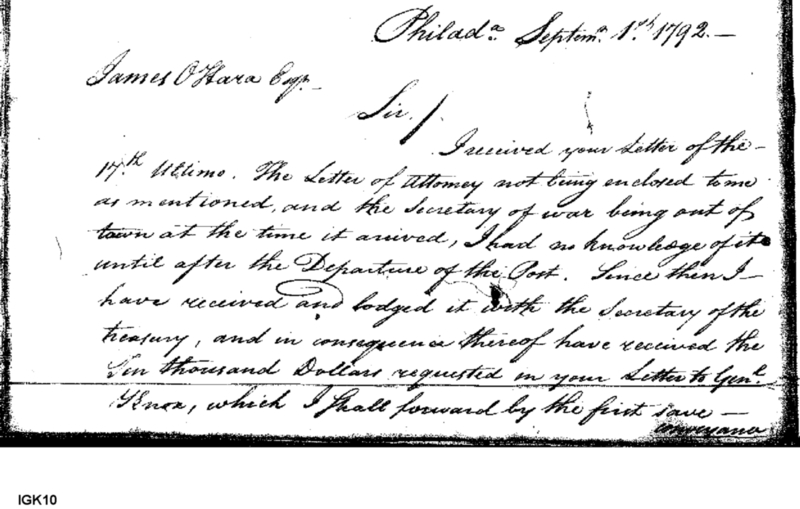 Philad.a Septem.r 1.th 1792.—
James O'Hara Esq.r
Sir /.
I received your Letter of the—
17.th Ultimo. The Letter of Attorney not being enclosed to me
as mentioned, and the Secretary of war being out of
town at the time it arived, I had no knowledge of it
until after the Departure of the Post. Since then I—
have received and lodged it with the Secretary of the
treasury, and in consequence thereof have received the
Ten thousand Dollars requested in your Letter to Gen.l
Knox, which I shall forward by the first save—
conveyance
IGK10